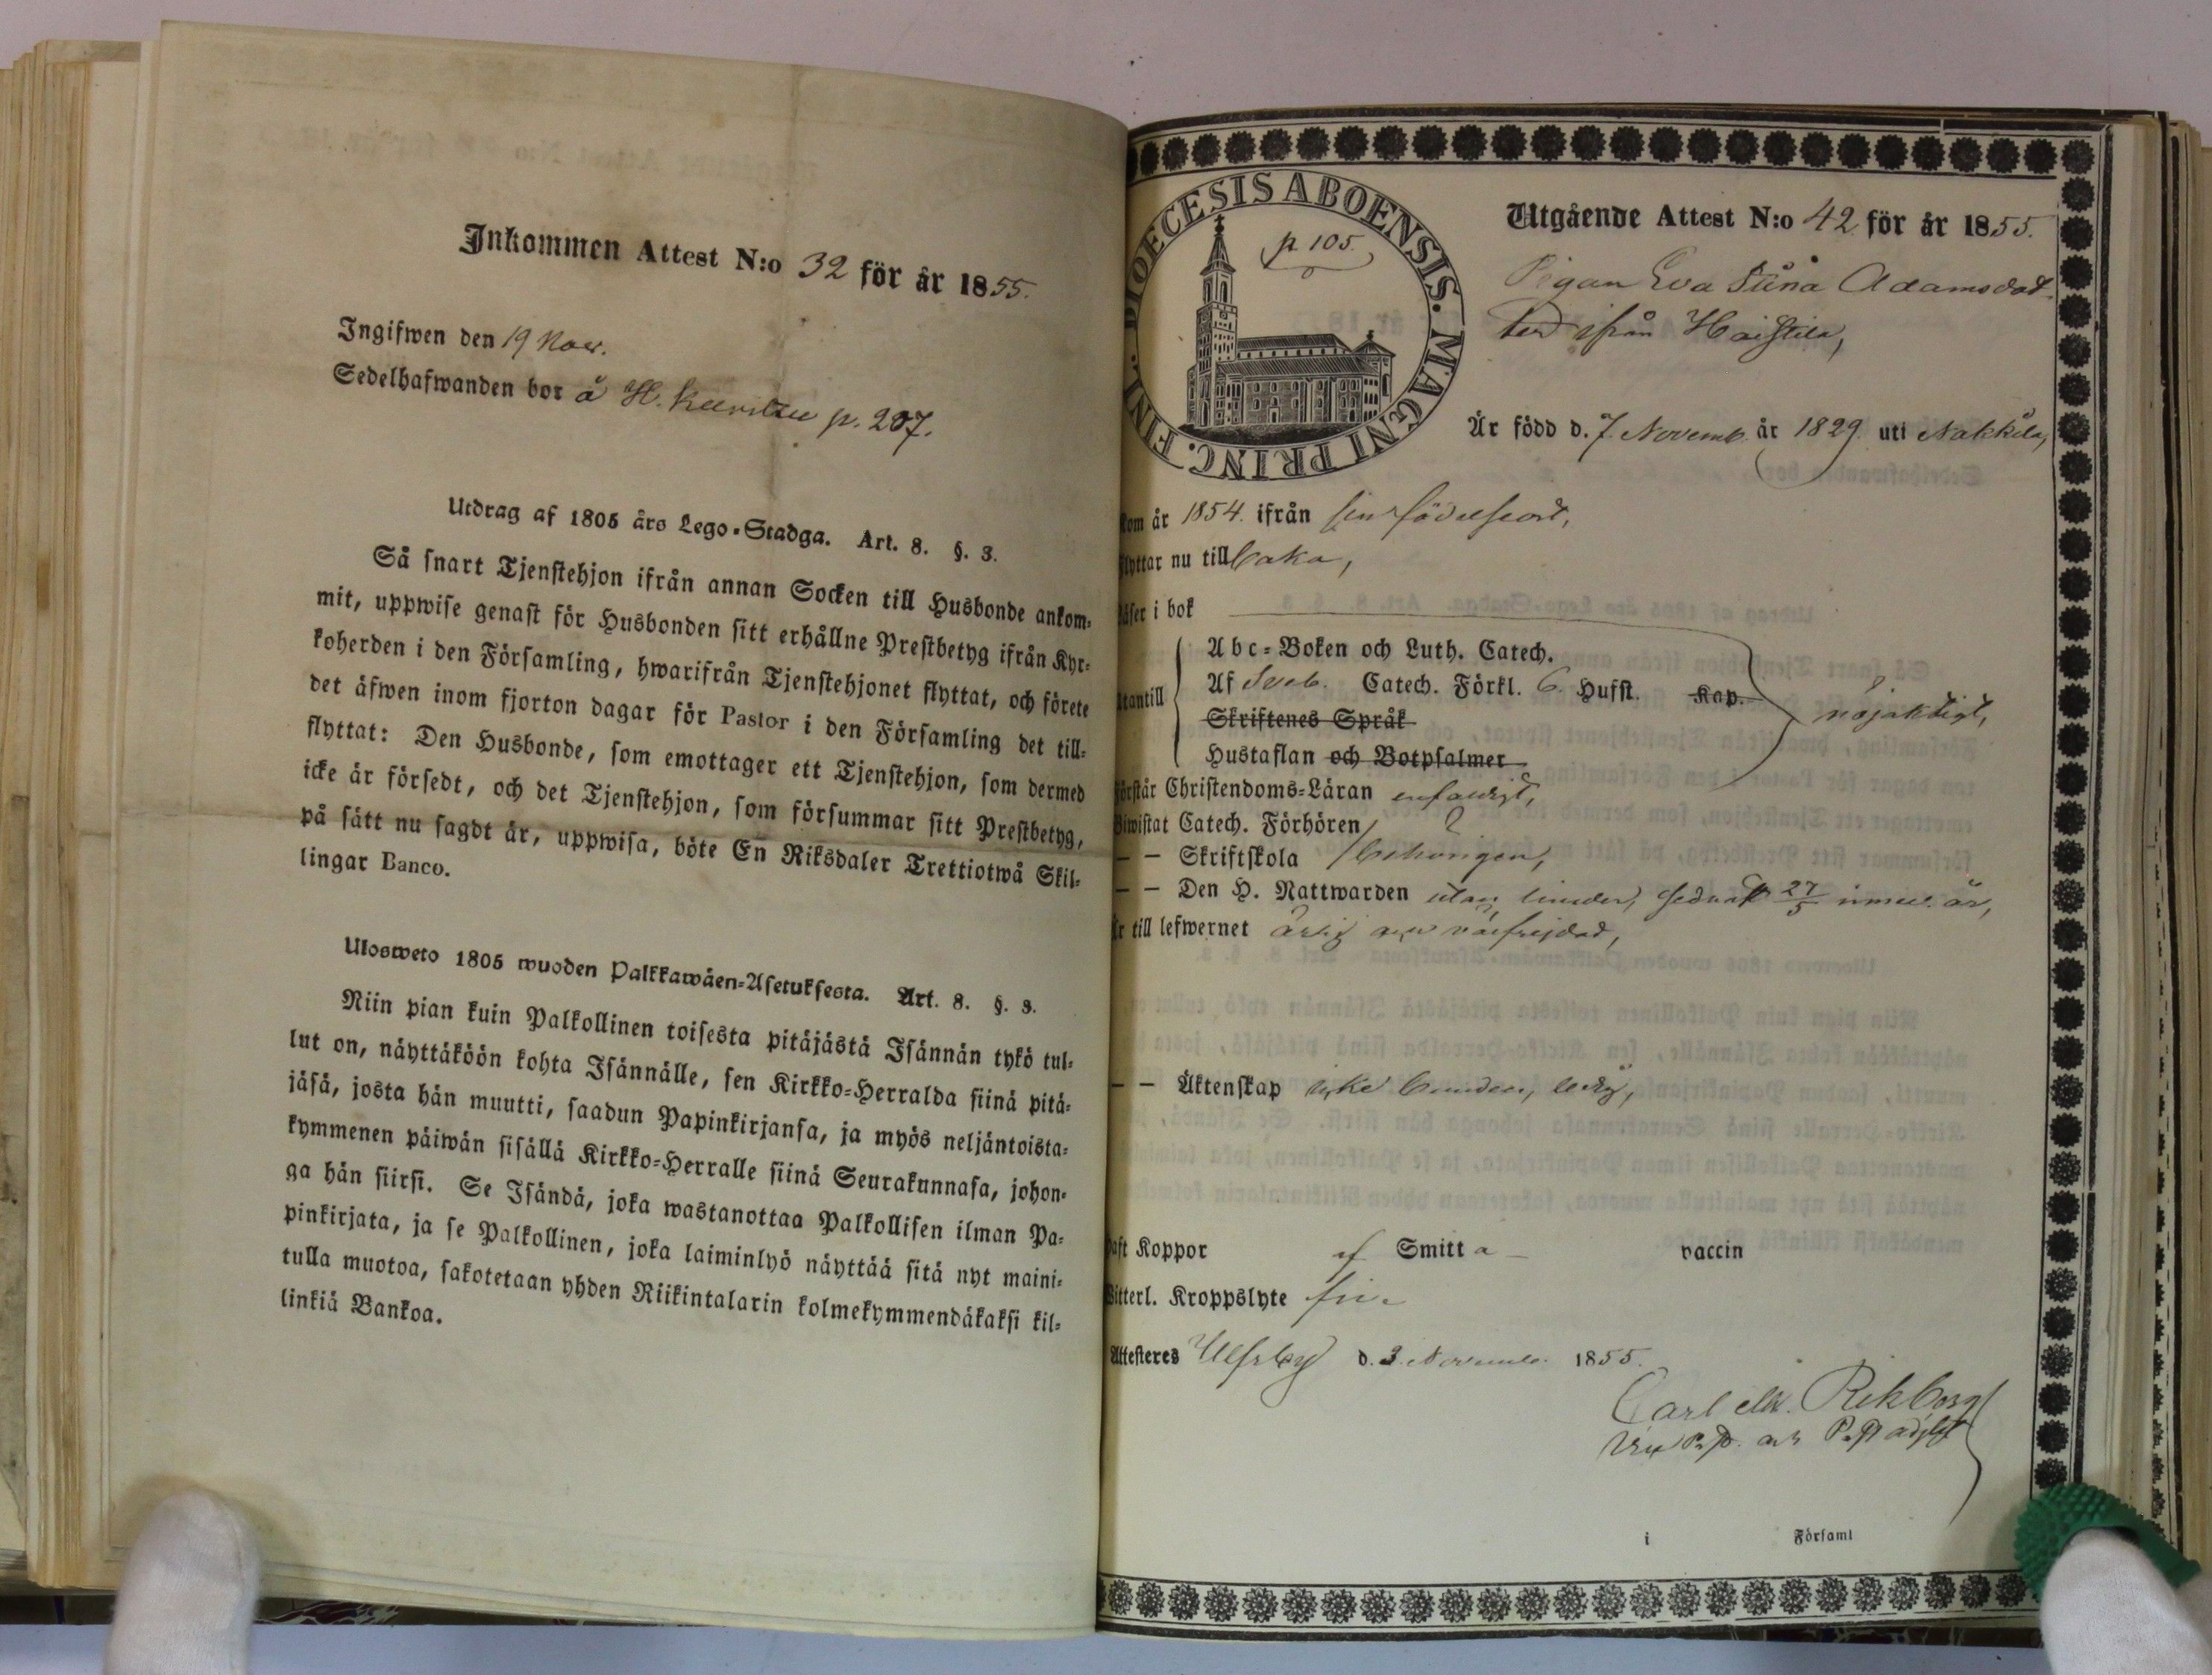 Inkommen Attest N:o 32 för år 1855.
Ingifwen den 19 Nov.
Sedelhafwanden bor å H. p. 207.
Utdrag af 1805 års Lego-Stadga. Art. 8. §. 3.
Så snart Tjenstehjon ifrån annan Socken till Husbonde ankom-
mit, uppwise genast för Husbonden sitt erhållne Prestbetyg ifrån Kyr-
koherden i den Församling, hwarifrån Tjenstehjonet flyttat, och förete
det äfwen inom fjorton dagar för Pastor i den Församling det till-
flyttat: Den Husbonde, som emottager ett Tjenstehjon, som dermed
icke är försedt, och det Tjenstehjon, som försummar sitt Prestbetyg,
på sätt nu sagdt är, uppwisa, böte En Riksdaler Trettiotwå Skil-
lingar Banco.
Ulosweto 1805 wuoden Palkkawäen-Asetuksesta. Art. 8. §. 3.
Niin pian kuin Palkollinen toisesta pitäjästä Isännän tykö tul-
lut on, näyttäköön kohta Isännälle, sen Kirkko-Herralda siinä pitä-
jäsä, josta hän muutti, saadun Papinkirjansa, ja myös neljäntoista-
kymmenen päiwän sisällä Kirkko-Herralle siinä Seurakunnasa, johon-
ga hän siirsi. Se Isändä, joka wastanottaa Palkollisen ilman Pa-
pinkirjata, ja se Palkollinen, joka laiminlyö näyttää sitä nyt maini-
tulla muotoa, sakotetaan yhden Riikintalarin kolmekymmendäkaksi kil-
linkiä Bankoa.
DIOECESIS ABOENSIS. MAGNI PRINC. FINL.
p 105.
Utgående Attest N:o 42 för år 1855.
Pigan Eva Stina Adamsdot-
ter ifrån Haistila,
Är född d. 7. Novemb. år 1829 uti Nakkila,
Kom år 1854. ifrån sin födelseort,
Flyttar nu tillbaka,
Läser i bok
Utantill
Abc-Boken och Luth. Catech.
Af Sveb. Catech. Förkl. 6. Hufst. Kap.
Skriftenes Språk
Hustaflan och Botpsalmer
nöjaktigt,
Förstår Christendoms-Läran enfaldigt,
Biwistat Catech. Förhören
— — Skriftskola behörigen,
— — Den H. Nattwarden utan hinder, sednast 27/5 innev. år,
Är till lefwernet ärlig och välfrejdad,
— — Äktenskap icke bunden, ledig,
Haft Koppor af Smitta vaccin
Witterl. Kroppslyte fri.
Attesteres Ulfsby d. 3. Novemb. 1855.
Carl Rikborg
P. P. och P. P adj
i Församl